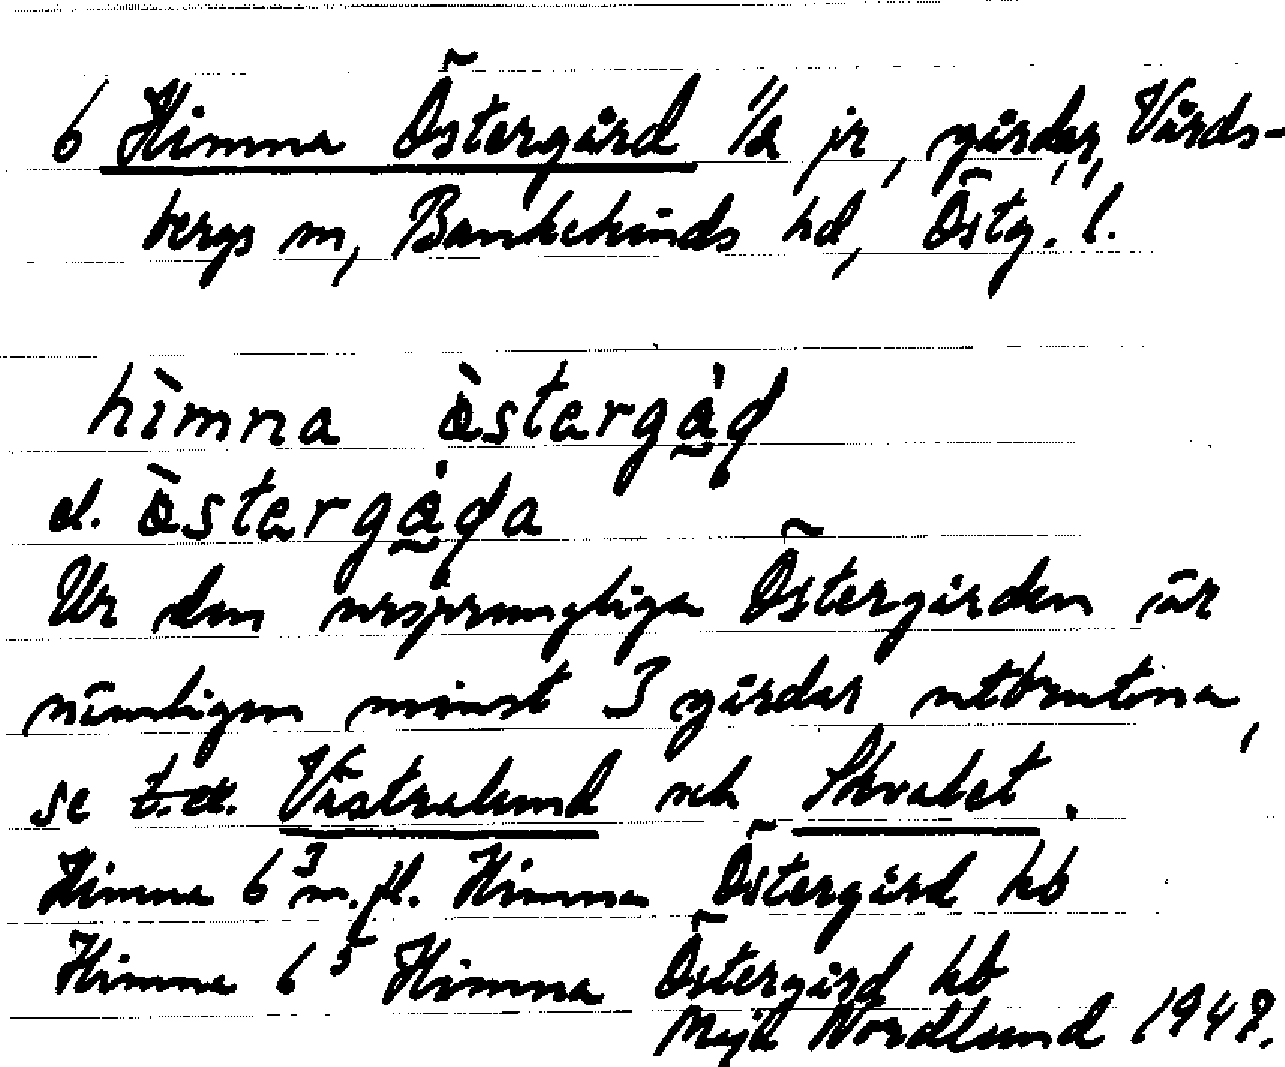 6 Himna Östergård 1/2 jr, gårdar, Vårds-
bergs sn, Bankekinds hd, Östg. l.
hìmna östargåd
el. östargåda
Ur den ursprungliga Östergården är
nämligen minst 3 gårdar utbrutna,
se t.ex. Västralund och Skvalet.
Himna 6³ m.fl. Himna Östergård kb
Himna 6⁵ Himna Östergård kb
Nordlund 1947.